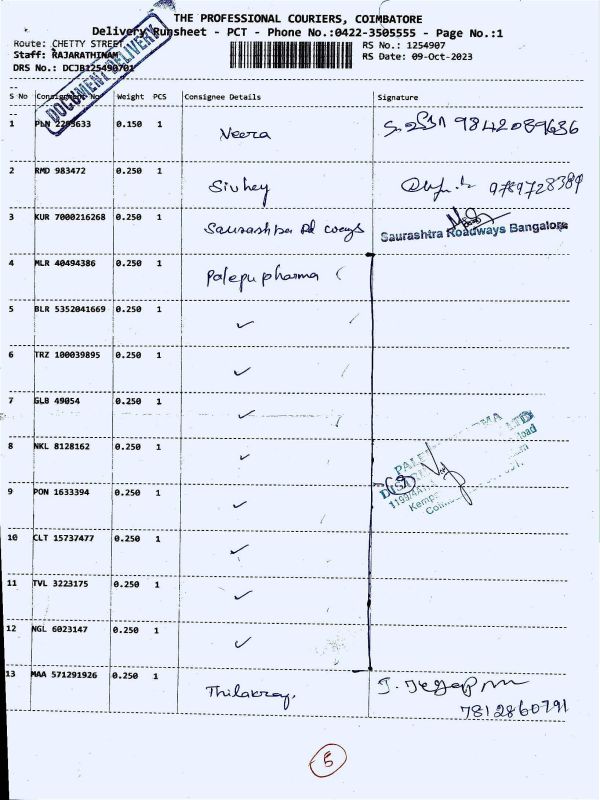 THE PROFESSIONAL COURIERS, COIMBATORE
Delivery Runsheet - PCT - Phone No.:0422-3505555 - Page No.:1
Route: CHETTY STREET
RS No.: 1254907
Staff: RAJARATHINAM
RS Date: 09-Oct-2023
DRS No.: DCJB125490701
DOCUMENT DELIVERY
S No Consignment No Weight PCS Consignee Details Signature
1 PLN 2293633 0.150 1 Veera 9842089636
2 RMD 983472 0.250 1 Sivhey 9789728389
3 KUR 7000216268 0.250 1 Saurashtra Rd ways
Saurashtra Roadways Bangalore
4 MLR 40494386 0.250 1 Palepu pharma (
5 BLR 5352041669 0.250 1 ✓
6 TRZ 100039895 0.250 1 ✓
7 GLB 49054 0.250 1 ✓
8 NKL 8128162 0.250 1 ✓
9 PON 1633394 0.250 1 ✓
10 CLT 15737477 0.250 1 ✓
11 TVL 3223175 0.250 1 ✓
12 NGL 6023147 0.250 1 ✓
13 MAA 571291926 0.250 1 Thilakraj.
7812860791